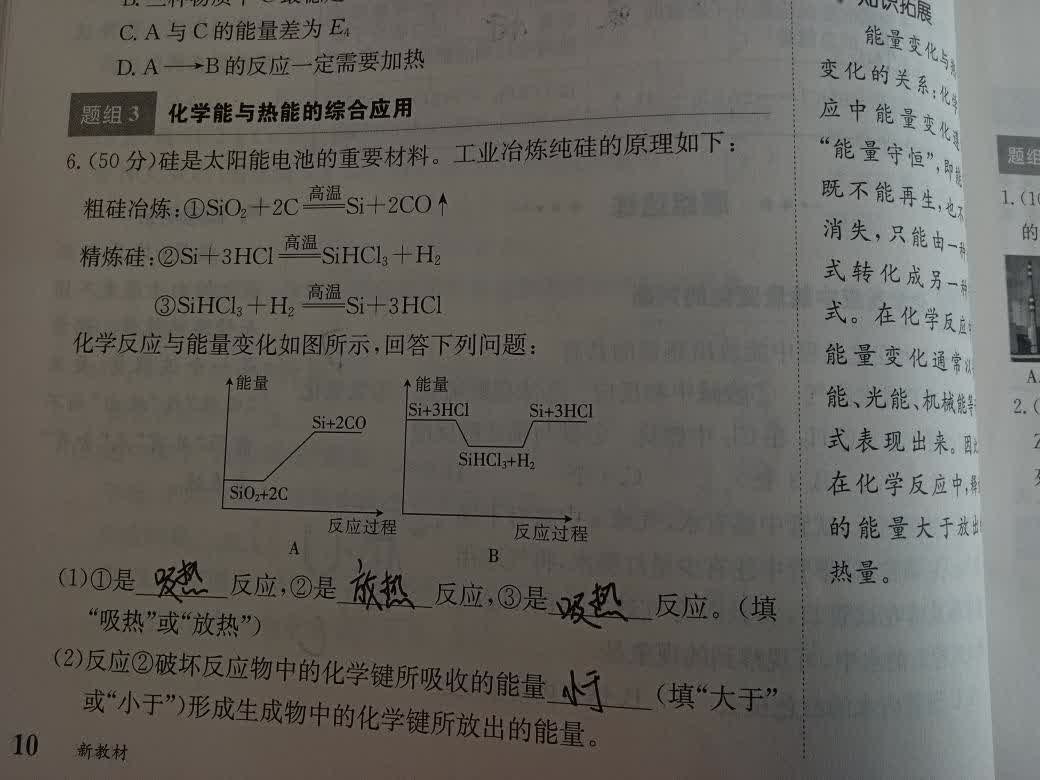 C. A与C的能量差为E₄
D. A⟶B的反应一定需要加热
题组3 化学能与热能的综合应用
6.(50分)硅是太阳能电池的重要材料。工业冶炼纯硅的原理如下：
粗硅冶炼：①SiO₂+2C 高温 Si+2CO↑
精炼硅：②Si+3HCl 高温 SiHCl₃+H₂
③SiHCl₃+H₂ 高温 Si+3HCl
化学反应与能量变化如图所示，回答下列问题：
能量
Si+2CO
SiO₂+2C
反应过程
A
能量
Si+3HCl
Si+3HCl
SiHCl₃+H₂
反应过程
B
(1)①是吸热反应，②是放热反应，③是吸热反应。(填
“吸热”或“放热”)
(2)反应②破坏反应物中的化学键所吸收的能量小于(填“大于”
或“小于”)形成生成物中的化学键所放出的能量。
10 新教材
知识拓展
能量变化与
变化的关系：化
应中能量变化
“能量守恒”，即
既不能再生，也
消失，只能由一
式转化成另一
式。在化学反应
能量变化通常
能、光能、机械能等
式表现出来。
在化学反应中，
的能量大于放
热量。
题组
1.(1
的
A.
2.(